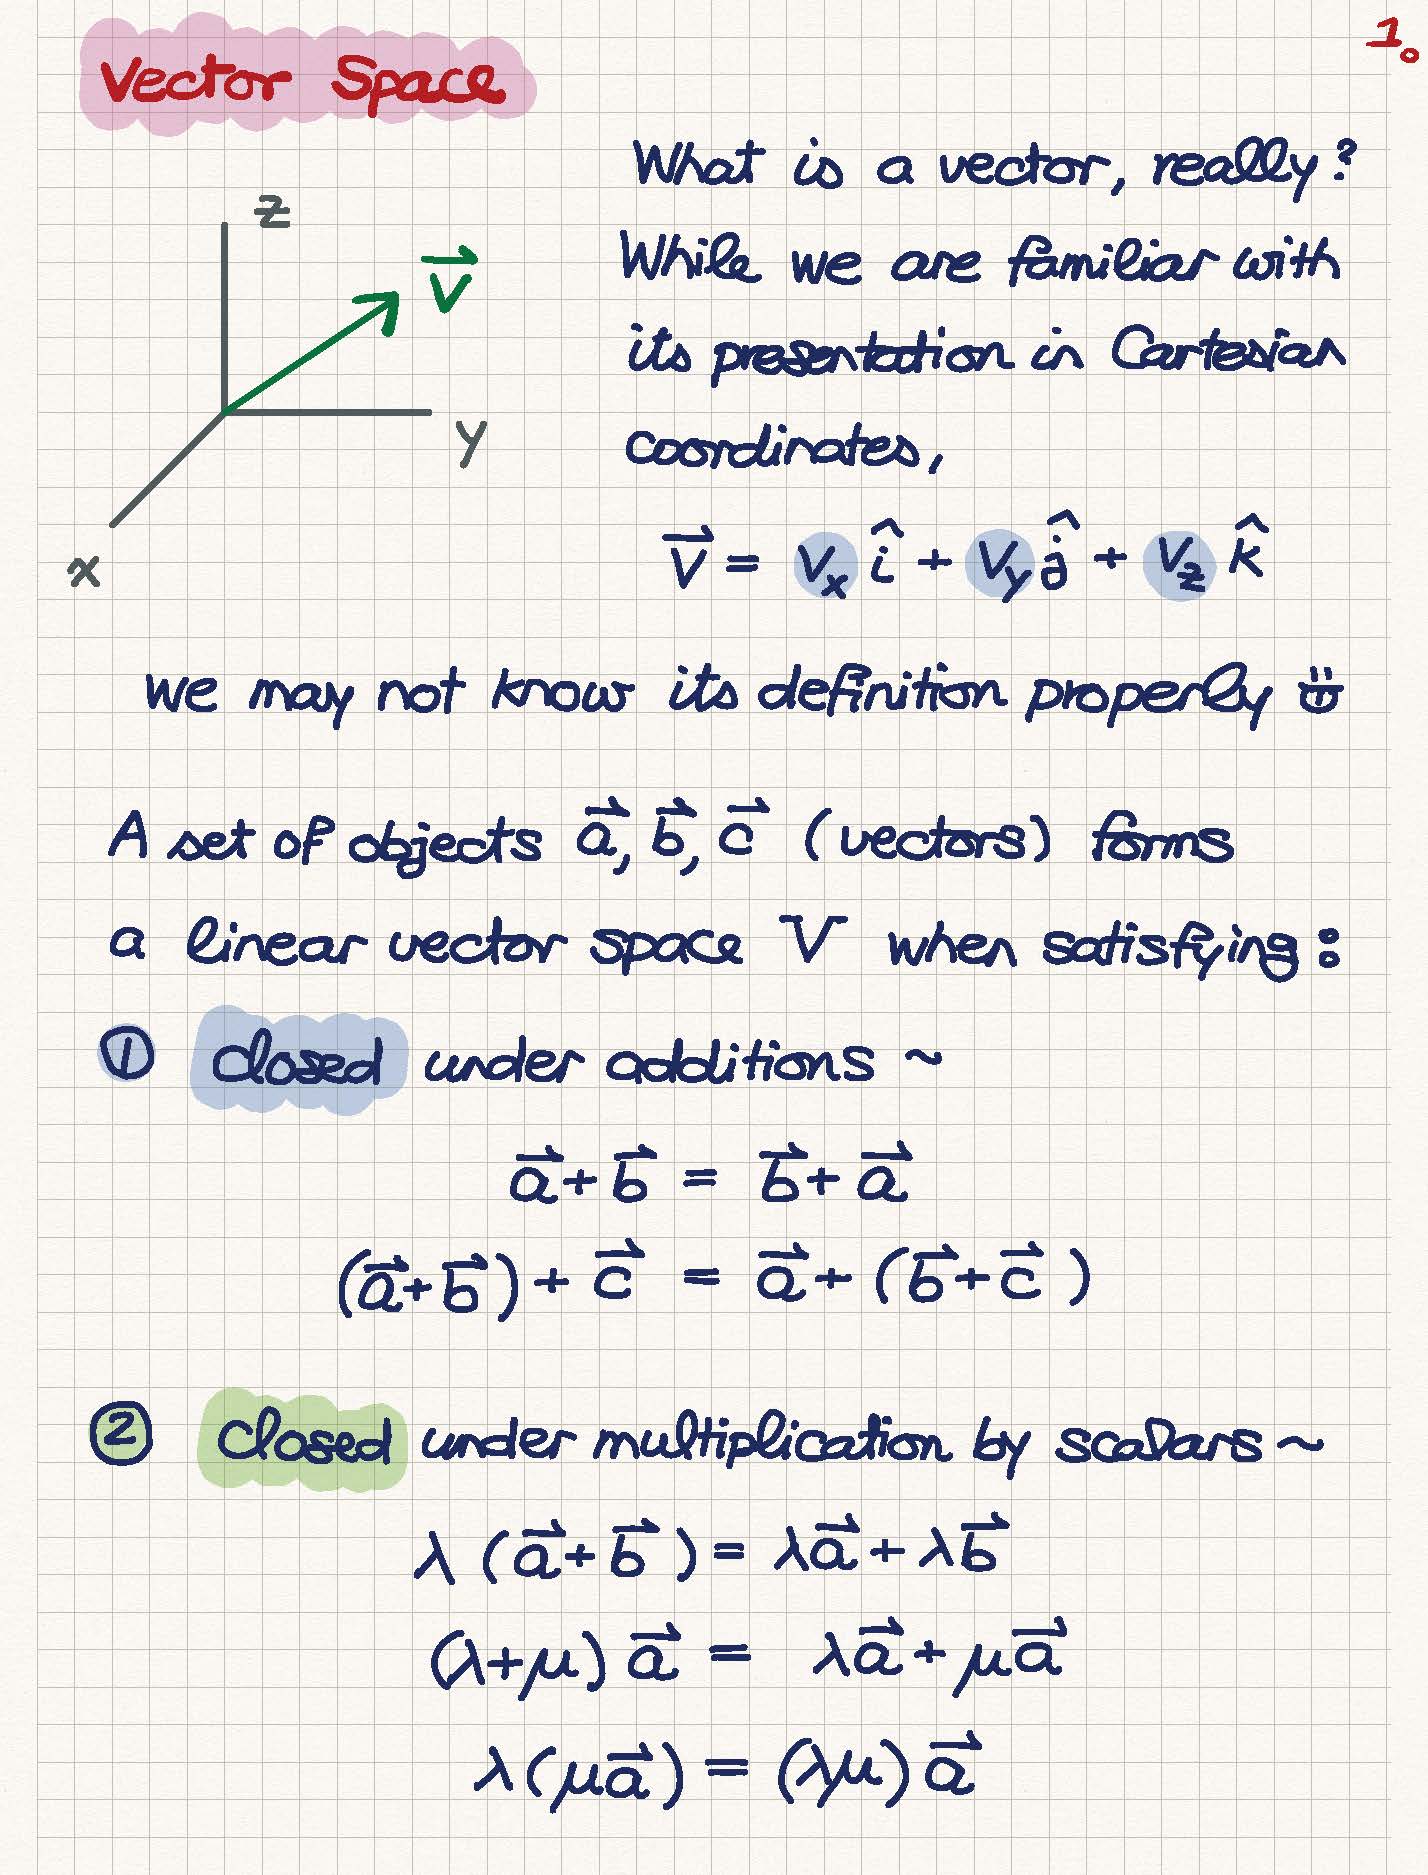 Vector Space
1.
What is a vector, really?
While we are familiar with
its presentation in Cartesian
coordinates,
z
V⃗
y
x
V⃗ = Vx î + Vy ĵ + Vz k̂
we may not know its definition properly ☺
A set of objects a⃗, b⃗, c⃗ (vectors) forms
a linear vector space V when satisfying:
① closed under additions ~
a⃗ + b⃗ = b⃗ + a⃗
(a⃗ + b⃗) + c⃗ = a⃗ + (b⃗ + c⃗)
② closed under multiplication by scalars ~
λ (a⃗ + b⃗) = λa⃗ + λb⃗
(λ+μ) a⃗ = λa⃗ + μa⃗
λ(μa⃗) = (λμ) a⃗